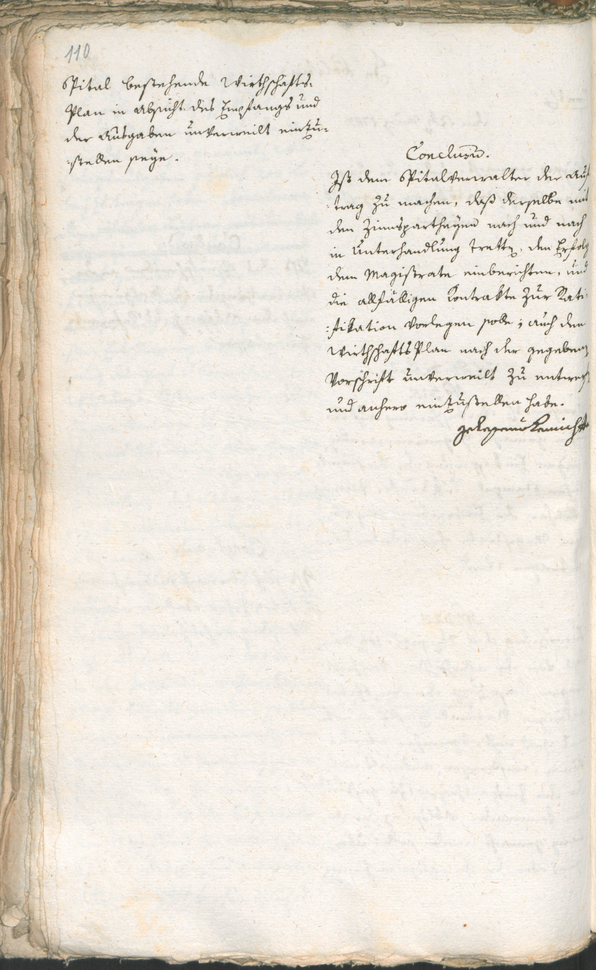 110
Spital bestehende Wirthschafts-
Plan in Absicht des Empfangs und
der Ausgaben unverweilt einzu-
stellen seye.
Conclusum.
Ist dem Spitalverwalter der Auf
trag zu machen, daß derselbe mit
den Zinnspartheyen nach und nach
in Unterhandlung trette, den Erfolg
dem Magistrate einberichten, und
die allfälligen Kontrakte zur Rati-
fikation vorlegen solle; auch den
Wirthschafts Plan nach der gegeben
Vorschrift unverweilt zu entwerf
und anhero einzustellen habe.